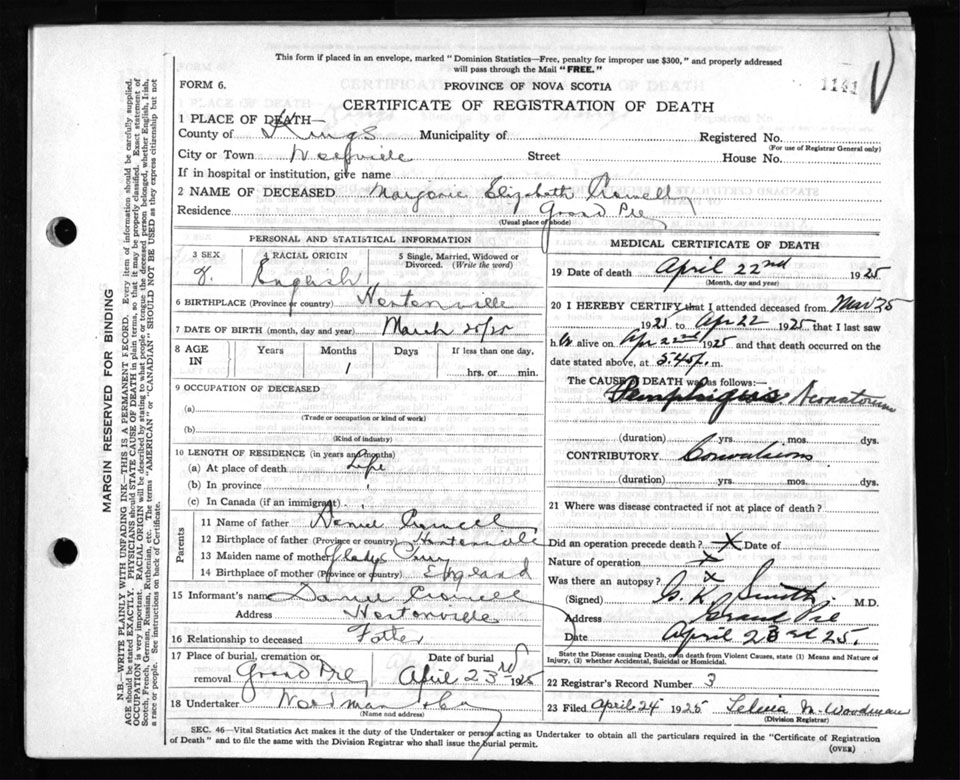 This form if placed in an envelope, marked "Dominion Statistics—Free, penalty for improper use $300," and properly addressed
will pass through the Mail "FREE."
FORM 6. PROVINCE OF NOVA SCOTIA 1141
CERTIFICATE OF REGISTRATION OF DEATH
1 PLACE OF DEATH—
County of Kings Municipality of Registered No.
(For use of Registrar General only)
City or Town Street House No.
If in hospital or institution, give name
2 NAME OF DECEASED Marjorie Elizabeth
Residence Grand Pre
(Usual place of abode)
MARGIN RESERVED FOR BINDING
N.B.—WRITE PLAINLY WITH UNFADING INK—THIS IS A PERMANENT RECORD. Every item of information should be carefully supplied.
AGE should be stated EXACTLY. PHYSICIANS should STATE CAUSE OF DEATH in plain terms, so that it may be properly classified. Exact statement of
OCCUPATION is very important. RACIAL ORIGIN will be described by stating to what people or tongue the deceased person belonged, whether English, Irish,
Scotch, French, German, Russian, Ruthenian, etc. The terms "AMERICAN" or "CANADIAN" SHOULD NOT BE USED as they express citizenship but not
a race or people. See instructions on back of Certificate.
PERSONAL AND STATISTICAL INFORMATION
3 SEX 4 RACIAL ORIGIN 5 Single, Married, Widowed or
Divorced. (Write the word)
F. English
6 BIRTHPLACE (Province or country) Hortonville
7 DATE OF BIRTH (month, day and year) March
8 AGE IN Years Months Days If less than one day,
1 hrs. or min.
9 OCCUPATION OF DECEASED
(a)
(Trade or occupation or kind of work)
(b)
(Kind of industry)
10 LENGTH OF RESIDENCE (in years and months)
(a) At place of death Life
(b) In province
(c) In Canada (if an immigrant)
Parents
11 Name of father
12 Birthplace of father (Province or country) Hortonville
13 Maiden name of mother Gladys
14 Birthplace of mother (Province or country) England
15 Informant's name
Address Hortonville
16 Relationship to deceased Father
17 Place of burial, cremation or Date of burial
removal Grand Pre April 23rd 1925
18 Undertaker Woodman
(Name and address)
MEDICAL CERTIFICATE OF DEATH
19 Date of death April 22nd 1925
(Month, day and year)
20 I HEREBY CERTIFY that I attended deceased from Mar 25
1925 to Apr 22 1925 that I last saw
h er alive on Apr 22nd 1925 and that death occurred on the
date stated above, at 5.45 m.
The CAUSE OF DEATH was as follows:—
Pemphigus Neonatorum
(duration) yrs. mos. dys.
CONTRIBUTORY Convulsions
(duration) yrs. mos. dys.
21 Where was disease contracted if not at place of death?
Did an operation precede death? X Date of
Nature of operation X
Was there an autopsy? X
(Signed) G. K. Smith M.D.
Address Grand Pre
Date April 23rd 25.
State the Disease causing Death, or, in death from Violent Causes, state (1) Means and Nature of
Injury, (2) whether Accidental, Suicidal or Homicidal.
22 Registrar's Record Number 3
23 Filed April 24 1925 Woodman
(Division Registrar)
SEC. 46—Vital Statistics Act makes it the duty of the Undertaker or person acting as Undertaker to obtain all the particulars required in the "Certificate of Registration
of Death" and to file the same with the Division Registrar who shall issue the burial permit.
(OVER)